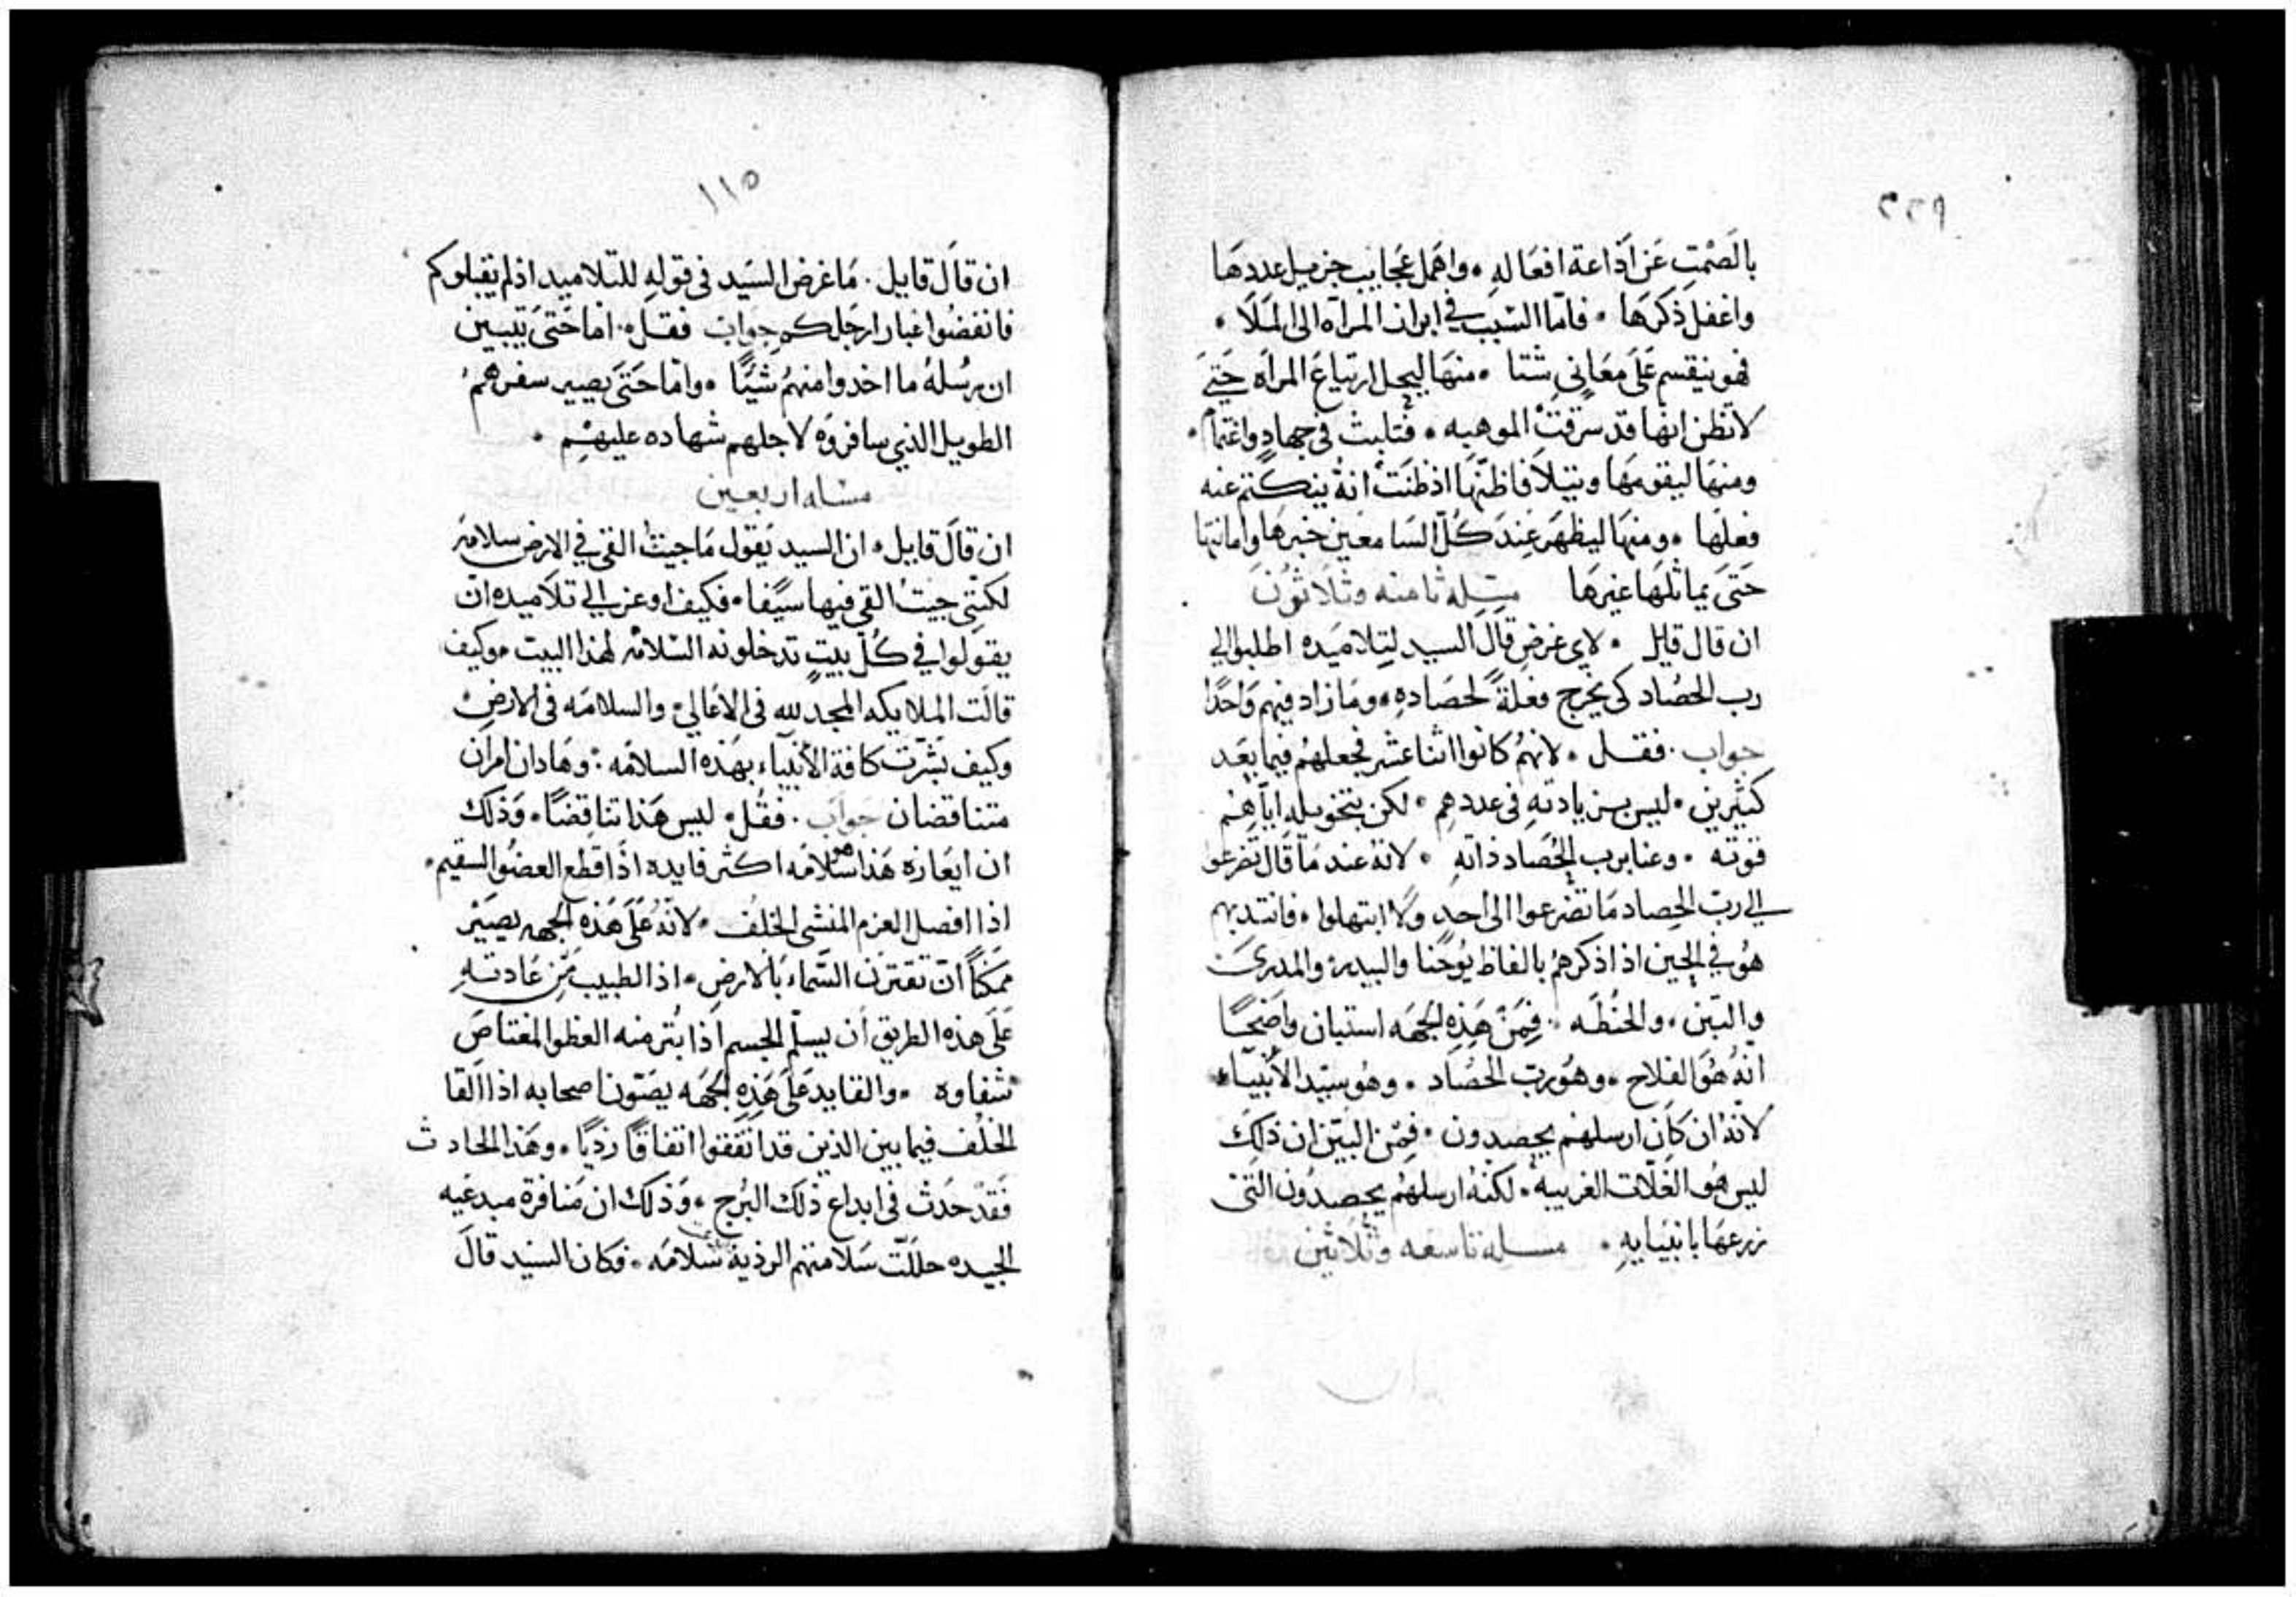 ٢٢٩
بالصَمْتِ عَن اَذاعة افعَاله • واهَمل عَجايب جزيل عددهَا
واغفل ذكرهَا • فامّا السَبب في ابراز المراَه الى المَلَا •
فهو ينقسم عَلَى مَعَاني شتا • منهَا ليحل ارتياعَ المراَه حَتىَ
لا تظن انها قد سَرقتْ الموهبه • فتلبث في جهادٍ واغتمام •
ومنهَا ليقومهَا ويتلافا ظنّهَا اذ ظنَتْ انهُ ينكَتم عنه
فعلهَا • ومنهَا ليظهَر عِندَ كُلّ السَامعين خبرهَا وامانتها
حَتىَ يماثلهَا غيرهَا مسله ثامنه وثلاثون
ان قال قايل • لاي غرضٍ قالَ السيد لتلاميَده اطلبوا الي
رب الحصَاد كى يخَرج فعلةً لحصَادهِ • ومَا زاد فيهم وَاحدًا
جواب • فقل • لانهمُ كانوا اثنا عشر فجعلهمُ فيما بعَد
كثيرين • ليس بزيادتهِ في عددهم • لكن بتخويله اياّهمُ
قوته • وعنا برب الحُصَاد ذاتهِ • لانهُ عند مَا قَال تضرعوا
الي ربّ الحِصاد مَا تضرعوا الى اَحدٍ ولا ابتهلوا • فانتدبهم
هوُ في الحِين اذ اذكرهمُ بالفاظ يُوحَنا والبيدر والمدرىَ
والتبن • والحنُطَه • فِمَن هَذِهِ الجهَه استبان واضحًا
انهُّ هُوَ الفلاح • وهوُ رب الحصَاد • وهوُ سيّد الأنبياء
لانهُ ان كاَن ارسلهمُ يحصدون • فِمن البيّن ان ذلِكَ
ليس هوُ الغَلّات الغريبه • لكنهُ ارسلهُم يحصدُون التىَ
زرعهَا بانبيَايهِ • مسله تاسعه وثلاثين
١١٥
ان قالَ قايل • مَا غرض السَيد في قولهِ للتلاميد اذ لم يقبلوكم
فانفضُوا غبار ارجَلكم جوابَ فقل • اما حَتىَ يتبين
ان رسُلهُ ما اخدوا منهُم شيًا • وامّا حَتىَ يصير سفرهمُ
الطويل الذي سافروَه لاجلهم شهاده عليهُم •
مسله اربعين
ان قالَ قايل • ان السيد يَقول مَا جيتُ القي في الارض سلامَه
لكنني جيتُ القي فيها سيًفا • فكيف اوعز الي تلاَميده انّ
يقولوا في كُلّ بيتٍ تدخلونه السَلامُ لهَذا البيت • وكيف
قالَت الملايكه المجد لله في الاعَالي والسلامَه في الارضِ
وكيف بَشّرت كافة الأنبيّاء بهذه السلامَه • وهَادان امران
متناقضان جوابَ • فقُل • ليس هَذا تناقِضًا • وَذلك
ان ايعَازه هَذا هو سَلامَه اكثر فايده اذا قطع العضوُ السقيم •
اذا افصل العزم المنشى الخلُف • لانهُ عَلَى هَذهِ الجهه يصيَر
ممَكناً انّ تقترن السّماء باَلارض • اذ الطبيب مِن عَادتهِ
عَلَى هذه الطريق اَن يسلّم الجسم اذا بُتر منه العظو المغتاصَ
شفاوه • والقايد عَلَى هَذهِ الجهَه يصَون اصحابه اذا القا
الخلُف فيما بين الذين قد اتفَقوا اتفاقاً رديًا • وهَذا الحادث
فَقدْ حَدَث في ابداع ذلك البُرج • وَذلك ان مَنافرة مبدعيَه
الجيده حللّت سَلامتهم الردية سَلامَه • فكان السَيد قالَ